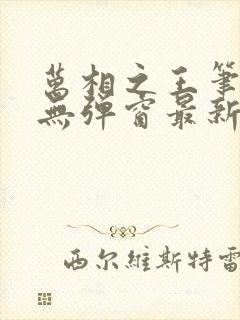 萬相之王筆
無彈窗最新
西尔維斯特雷